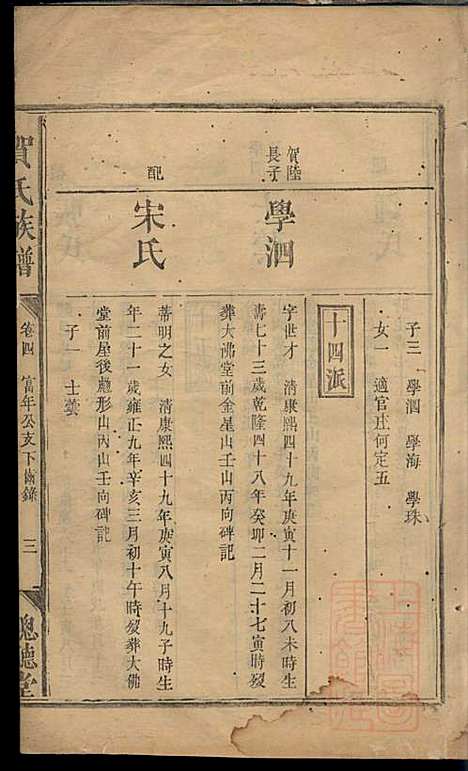 子三 學泗 學海 學珠
女一 適官庄何定五
十四派
賀陸
長子
學泗
字世才 清康熙四十九年庚寅十一月初八未時生
壽七十三歲乾隆四十八年癸卯二月二十七寅時歿
葬大佛堂前金星山壬山丙向碑記
配
宋氏
蒂明之女 清康熙四十九年庚寅八月十九子時生
年二十一歲雍正九年辛亥三月初十午時歿葬大佛
堂前星後 形山丙山壬向碑記
子一 士
賀氏族譜
卷四 富年公支下齒錄 三
聰聽堂